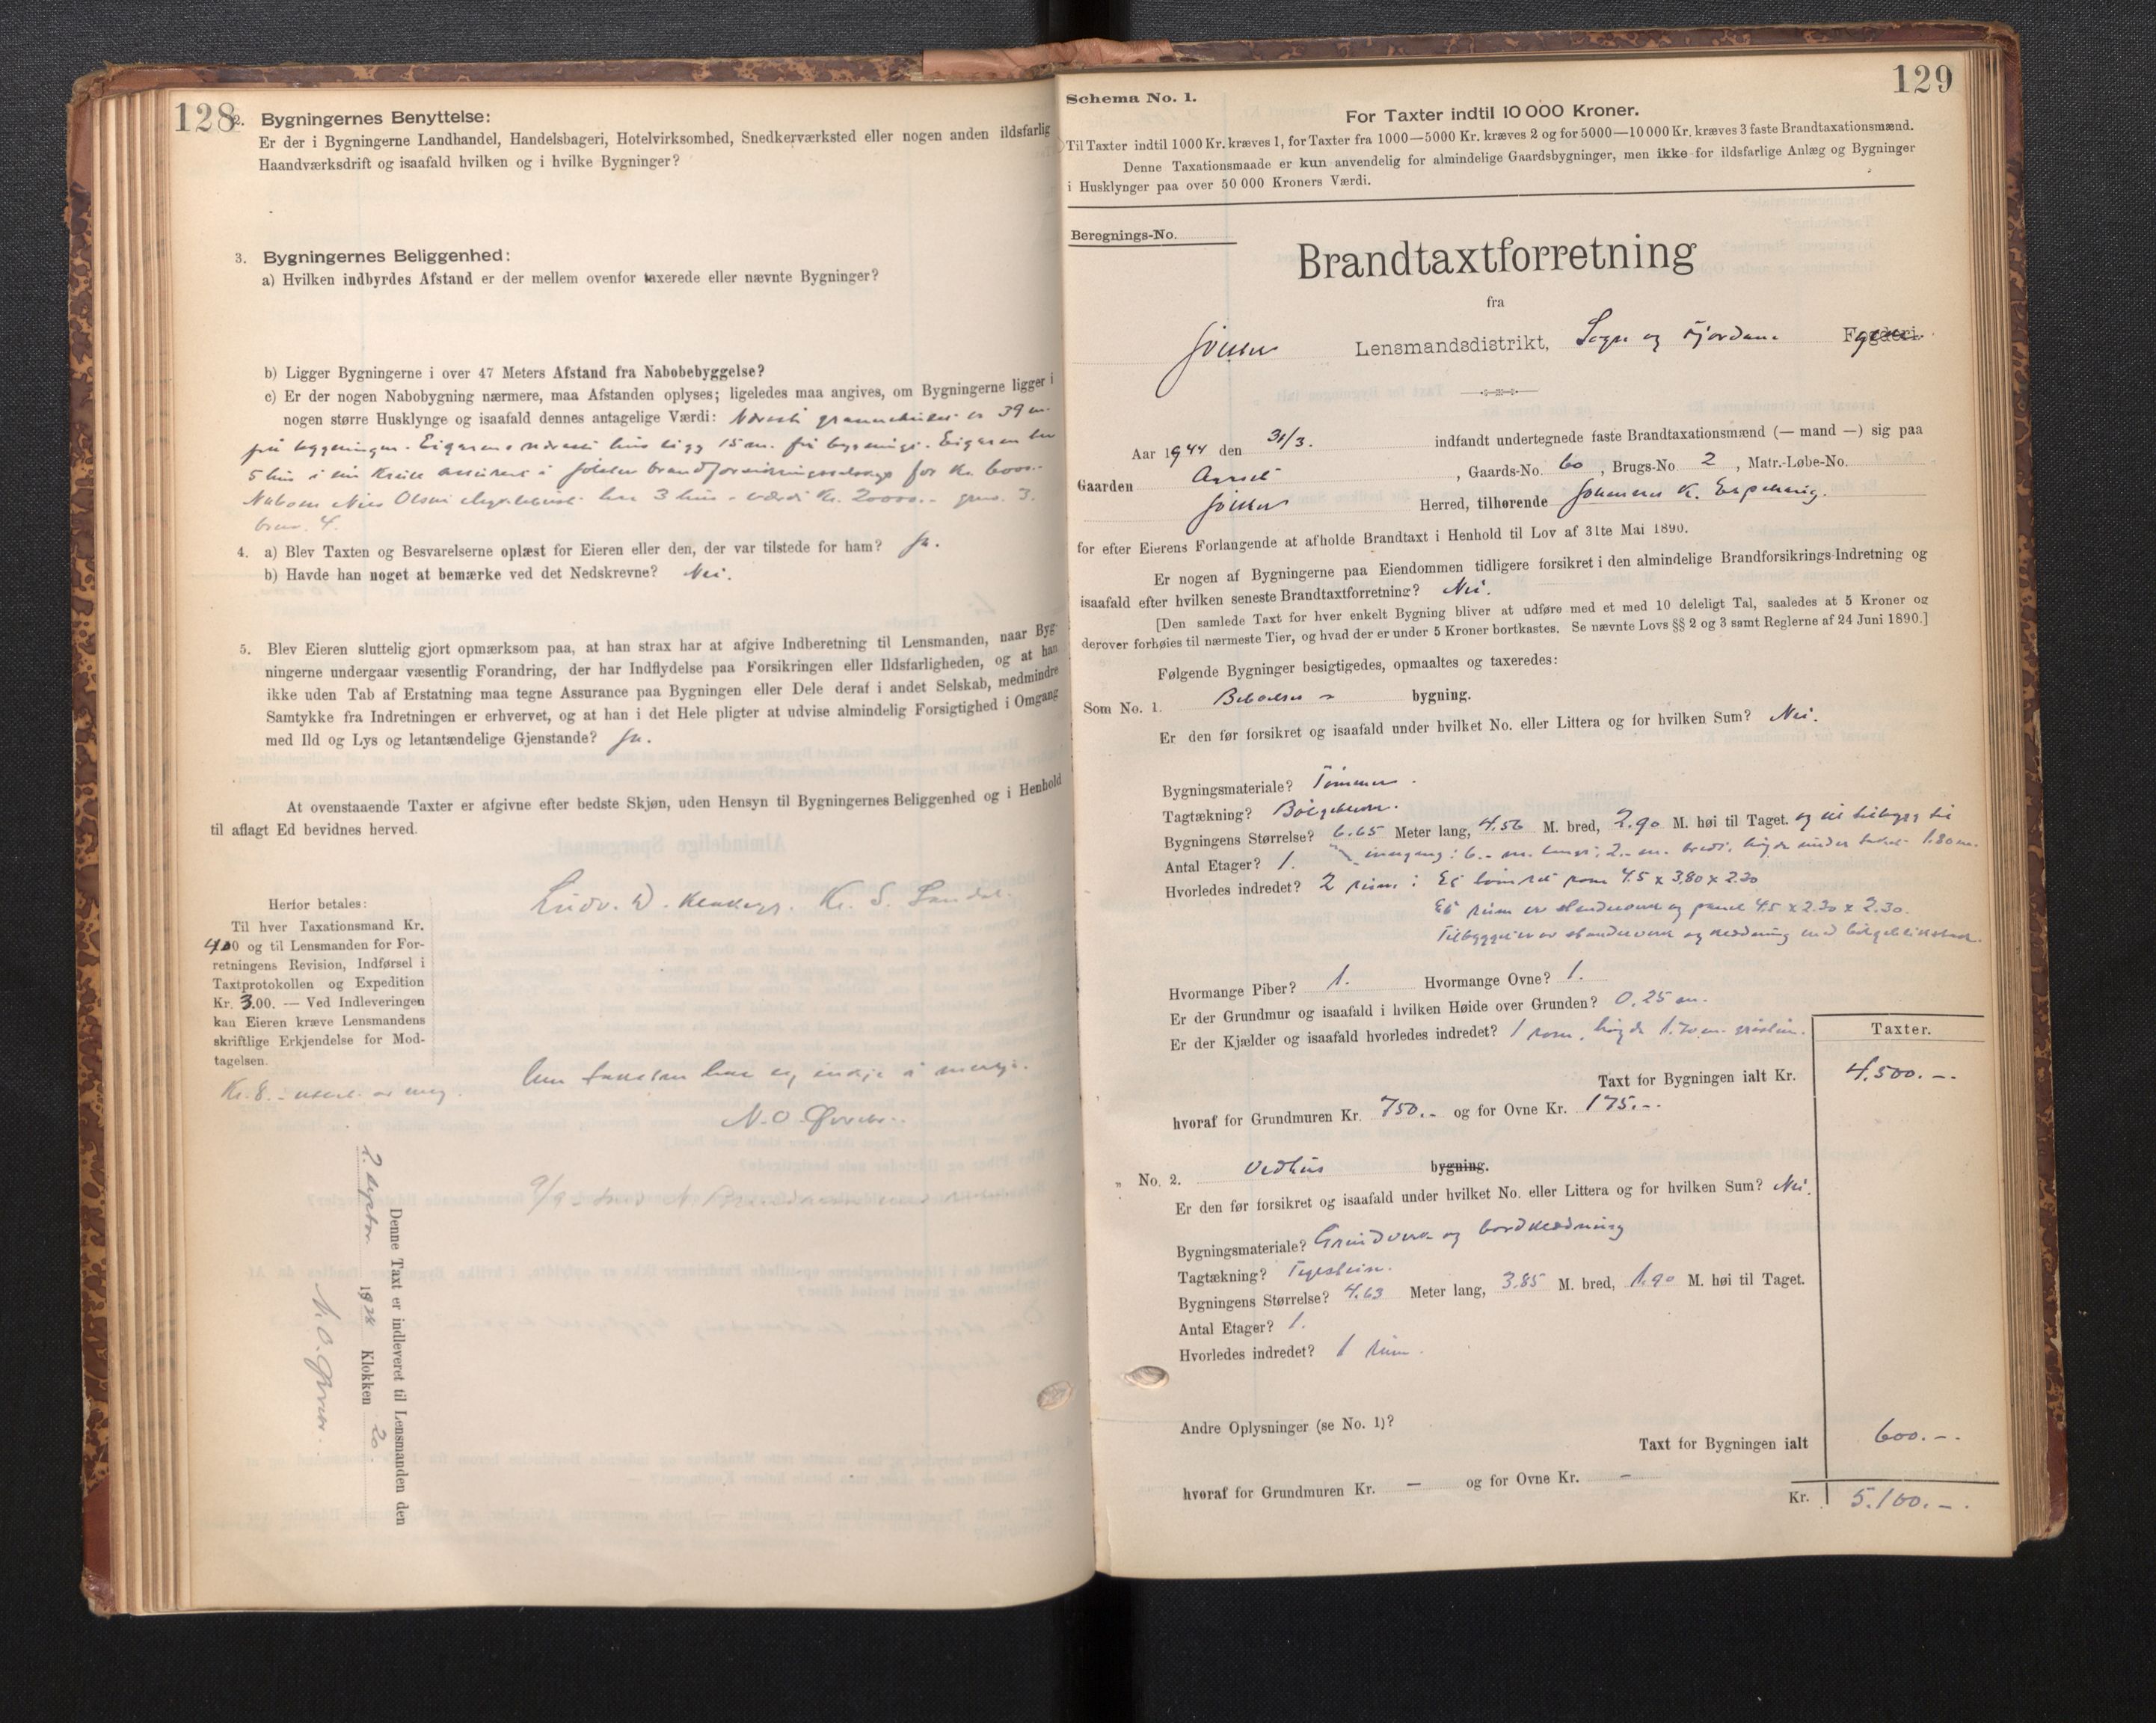 128
2. Bygningernes Benyttelse:
Er der i Bygningerne Landhandel, Handelsbageri, Hotelvirksomhed, Snedkerværksted eller nogen anden ildsfarlig
Haandværksdrift og isaafald hvilken og i hvilke Bygninger?
3. Bygningernes Beliggenhed:
a) Hvilken indbyrdes Afstand er der mellem ovenfor taxerede eller nævnte Bygninger?
b) Ligger Bygningerne i over 47 Meters Afstand fra Nabobebyggelse?
c) Er der nogen Nabobygning nærmere, maa Afstanden oplyses; ligeledes maa angives, om Bygningerne ligger i
nogen større Husklynge og isaafald dennes antagelige Værdi: Næreste grannehuset er 39 m.
frå bygningen. Eigarens næreste hus ligg 15 m. frå bygningi. Eigaren har
5 hus i ein krins assurert i Jølster brandforsikringsselskap for kr. 6000.-
Naboen Nils Olson har 3 hus - værdi kr. 20000.- gnr. 3.
bnr. 4.
4. a) Blev Taxten og Besvarelserne oplæst for Eieren eller den, der var tilstede for ham? Ja.
b) Havde han noget at bemærke ved det Nedskrevne? Nei.
5. Blev Eieren sluttelig gjort opmærksom paa, at han strax har at afgive Indberetning til Lensmanden, naar Byg-
ningerne undergaar væsentlig Forandring, der har Indflydelse paa Forsikringen eller Ildsfarligheden, og at han
ikke uden Tab af Erstatning maa tegne Assurance paa Bygningen eller Dele deraf i andet Selskab, medmindre
Samtykke fra Indretningen er erhvervet, og at han i det Hele pligter at udvise almindelig Forsigtighed i Omgang
med Ild og Lys og letantændelige Gjenstande? Ja.
At ovenstaaende Taxter er afgivne efter bedste Skjøn, uden Hensyn til Bygningernes Beliggenhed og i Henhold
til aflagt Ed bevidnes herved.
Ludv. D. Kl. S. Sandal.
Herfor betales:
Til hver Taxationsmand Kr.
4,00 og til Lensmanden for For-
retningens Revision, Indførsel i
Taxtprotokollen og Expedition
Kr. 3.00. — Ved Indleveringen
kan Eieren kræve Lensmandens
skriftlige Erkjendelse for Mod-
tagelsen.
Kr. 8.- av meg.
har eg inkje å merkje.
N. O. Øvrebø.
9/9
Denne Taxt er indleveret til Lensmanden den
2. 19 Klokken 20
N. O. Øvrebø.
129
Schema No. 1.
For Taxter indtil 10 000 Kroner.
Til Taxter indtil 1000 Kr. kræves 1, for Taxter fra 1000—5000 Kr. kræves 2 og for 5000—10 000 Kr. kræves 3 faste Brandtaxationsmænd.
Denne Taxationsmaade er kun anvendelig for almindelige Gaardsbygninger, men ikke for ildsfarlige Anlæg og Bygninger
i Husklynger paa over 50 000 Kroners Værdi.
Beregnings-No.
Brandtaxtforretning
fra
Jølster Lensmandsdistrikt, Sogn og Fjordane Fogderi.
Aar 1944 den 31/3. indfandt undertegnede faste Brandtaxationsmænd (— mand —) sig paa
Gaarden , Gaards-No. 60, Brugs-No. 2, Matr.-Løbe-No.
Jølster Herred, tilhørende Johannes K.
for efter Eierens Forlangende at afholde Brandtaxt i Henhold til Lov af 31te Mai 1890.
Er nogen af Bygningerne paa Eiendommen tidligere forsikret i den almindelige Brandforsikrings-Indretning og
isaafald efter hvilken seneste Brandtaxtforretning? Nei.
[Den samlede Taxt for hver enkelt Bygning bliver at udføre med et med 10 deleligt Tal, saaledes at 5 Kroner og
derover forhøies til nærmeste Tier, og hvad der er under 5 Kroner bortkastes. Se nævnte Lovs §§ 2 og 3 samt Reglerne af 24 Juni 1890.]
Følgende Bygninger besigtigedes, opmaaltes og taxeredes:
Som No. 1. Beboelses bygning.
Er den før forsikret og isaafald under hvilket No. eller Littera og for hvilken Sum? Nei.
Bygningsmateriale? Tømmer.
Tagtækning? Bølgeblekk.
Bygningens Størrelse? 6.65 Meter lang, 4.56 M. bred, 2.90 M. høi til Taget. og eit tilbygg til
Antal Etager? 1. inngang: 6.- m. lengd, 2.- m. breidd, høgde under taket 1.80 m.
Hvorledes indredet? 2 rum: Et tømret rom 4.5 x 3.80 x 2.30
Et rum av stenderverk og panel 4.5 x 2.30 x 2.30.
Tilbygget er av stenderverk og klædning med bølgeblikktak.
Hvormange Piber? 1. Hvormange Ovne? 1.
Er der Grundmur og isaafald i hvilken Høide over Grunden? 0.25 m.
Er der Kjælder og isaafald hvorledes indredet? 1 rom, høgde 1.70 m. gråstein.
Taxter.
Taxt for Bygningen ialt Kr. 4.500.—
hvoraf for Grundmuren Kr. 750.- og for Ovne Kr. 175.-
„ No. 2. Vedhus bygning.
Er den før forsikret og isaafald under hvilket No. eller Littera og for hvilken Sum? Nei.
Bygningsmateriale? Grindverk og bordklædning
Tagtækning? Teglstein.
Bygningens Størrelse? 4.63 Meter lang, 3.85 M. bred, 1.90 M. høi til Taget.
Antal Etager? 1.
Hvorledes indredet? 1 rum.
Andre Oplysninger (se No. 1)?
Taxt for Bygningen ialt 600.—
hvoraf for Grundmuren Kr. — og for Ovne Kr. —
Kr. 5.100.—